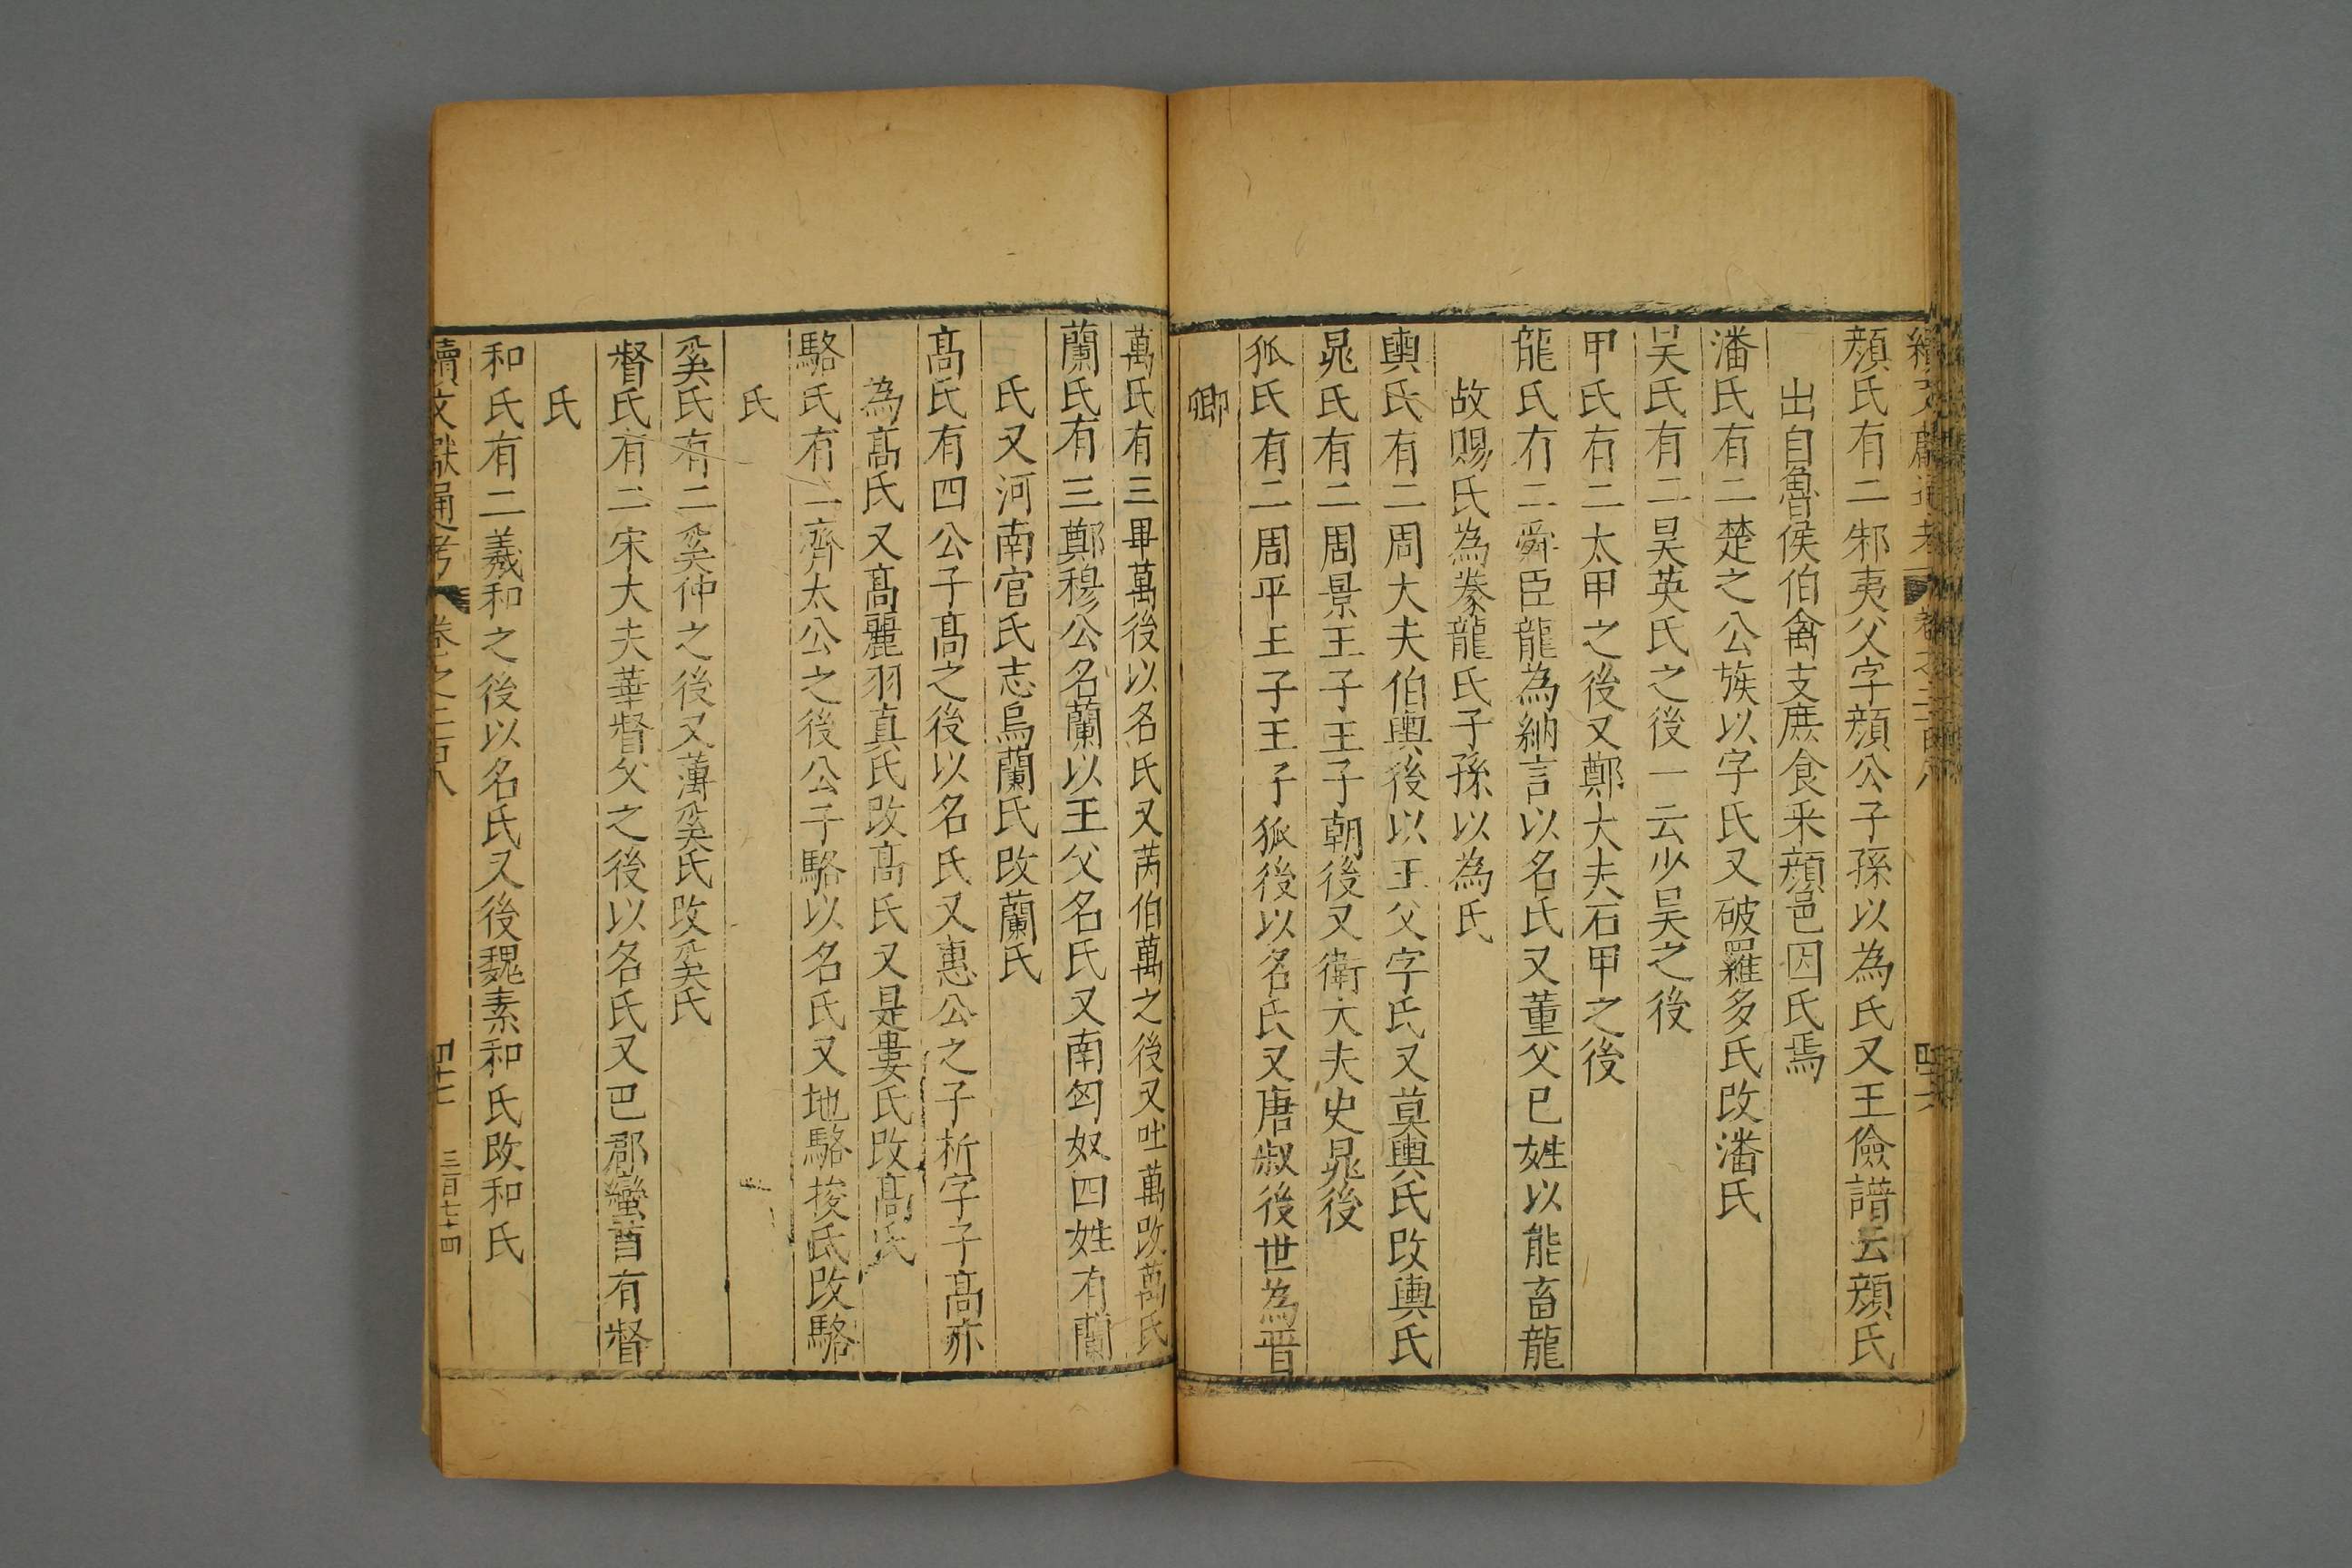 顔氏有二邾夷父字顔公子孫以為氏又王儉譜云顔氏
出自魯侯伯禽支庶食采顔邑因氏焉
潘氏有二楚之公族以字氏又破羅多氏改潘氏
吴氏有二昊英氏之後一云少昊之後
甲氏有二太甲之後又鄭大夫石甲之後
龍氏有二舜臣龍為納言以名氏又董父已姓以能畜龍
故賜氏為豢龍氏子孫以為氏
輿氏有二周大夫伯輿後以王父字氏又莫輿氏改輿氏
晁氏有二周景王子王子朝後又衛大夫史晁後
狐氏有二周平王子王子狐後以名氏又唐叔後世為晋
卿
萬氏有三畢萬後以名氏又芮伯萬之後又吐萬改萬氏
蘭氏有三鄭穆公名蘭以王父名氏又南匈奴四姓有蘭
氏又河南官氏志烏蘭氏改蘭氏
髙氏有四公子髙之後以名氏又惠公之子祈字子髙亦
為髙氏又髙麗羽真氏改髙氏又是婁氏改髙氏
駱氏有二齊太公之後公子駱以名氏又地駱拔氏改駱
氏
奚氏有二奚仲之後又薄奚氏改奚氏
督氏有二宋大夫華督父之後以名氏又巴郡蠻酋有督
氏
和氏有二羲和之後以名氏又後魏素和氏改和氏
續文獻通考 卷之二百八 四十七 三百七十四